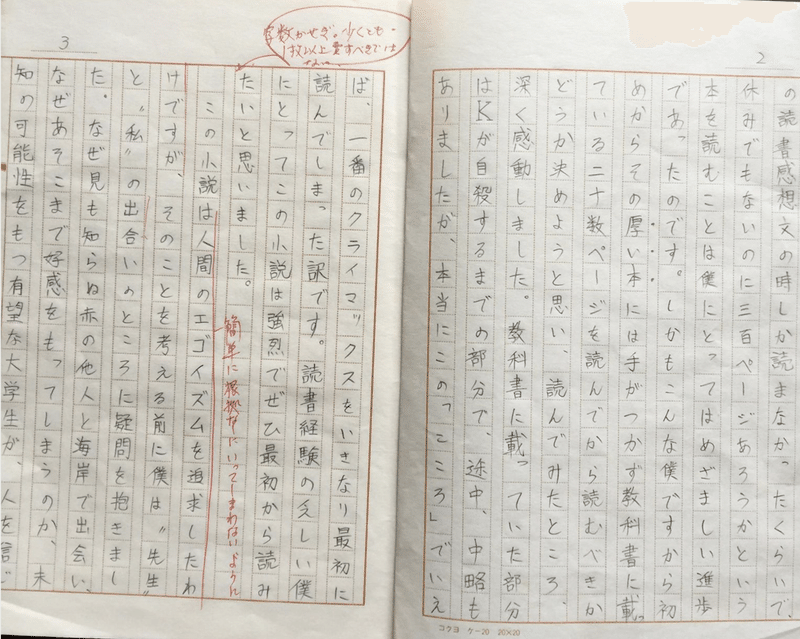 2
の読書感想文の時しか読まなかったくらいで、
休みでもないのに三百ページあろうかという
本を読むことは僕にとってはめざましい進歩
であったのです。しかもこんな僕ですから初
めからその厚い本には手がつかず教科書に載っ
ている二十数ページを読んでから読むべきか
どうか決めようと思い、読んでみたところ、
深く感動しました。教科書に載っていた部分
はKが自殺するまでの部分で、途中、中略も
ありましたが、本当にこの「こころ」でいえ
コクヨ ケー20 20×20
3
字数かせぎ。少くとも
以上書すべきでは
ば、一番のクライマックスをいきなり最初に
読んでしまった訳です。読書経験の乏しい僕
にとってこの小説は強烈でぜひ最初から読み
たいと思いました。
簡単に根拠なしにいってしまわないように
この小説は人間のエゴイズムを追求したわ
けですが、そのことを考える前に僕は〝先生〟
と〝私〟の出合いのところに疑問を抱きまし
た。なぜ見も知らぬ赤の他人と海岸で出会い、
なぜあそこまで好感をもってしまうのか、未
知の可能性をもつ有望な大学生が、人を信じ